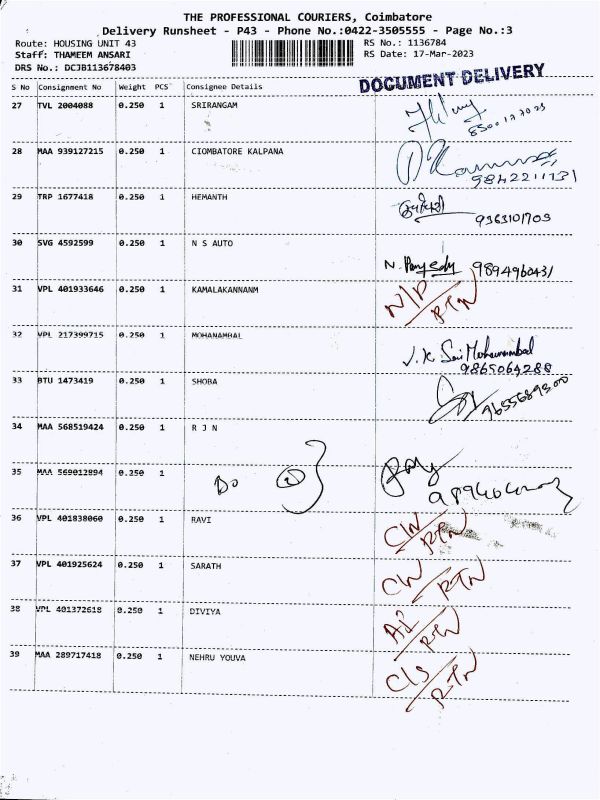 THE PROFESSIONAL COURIERS, Coimbatore
Delivery Runsheet - P43 - Phone No.:0422-3505555 - Page No.:3
Route: HOUSING UNIT 43 RS No.: 1136784
Staff: THAMEEM ANSARI RS Date: 17-Mar-2023
DRS No.: DCJB113678403
DOCUMENT DELIVERY
S No Consignment No Weight PCS Consignee Details
27 TVL 2004088 0.250 1 SRIRANGAM
28 MAA 939127215 0.250 1 CIOMBATORE KALPANA
9842211131
29 TRP 1677418 0.250 1 HEMANTH
9363101703
30 SVG 4592599 0.250 1 N S AUTO
9894960431
31 VPL 401933646 0.250 1 KAMALAKANNANM
N/P RTN
32 VPL 217399715 0.250 1 MOHANAMBAL
9865064288
33 BTU 1473419 0.250 1 SHOBA
9655689500
34 MAA 568519424 0.250 1 R J N
35 MAA 569012894 0.250 1 Do 2
36 VPL 401838060 0.250 1 RAVI
RTN
37 VPL 401925624 0.250 1 SARATH
RTN
38 VPL 401372618 0.250 1 DIVIYA
RTN
39 MAA 289717418 0.250 1 NEHRU YOUVA
C/S RTN